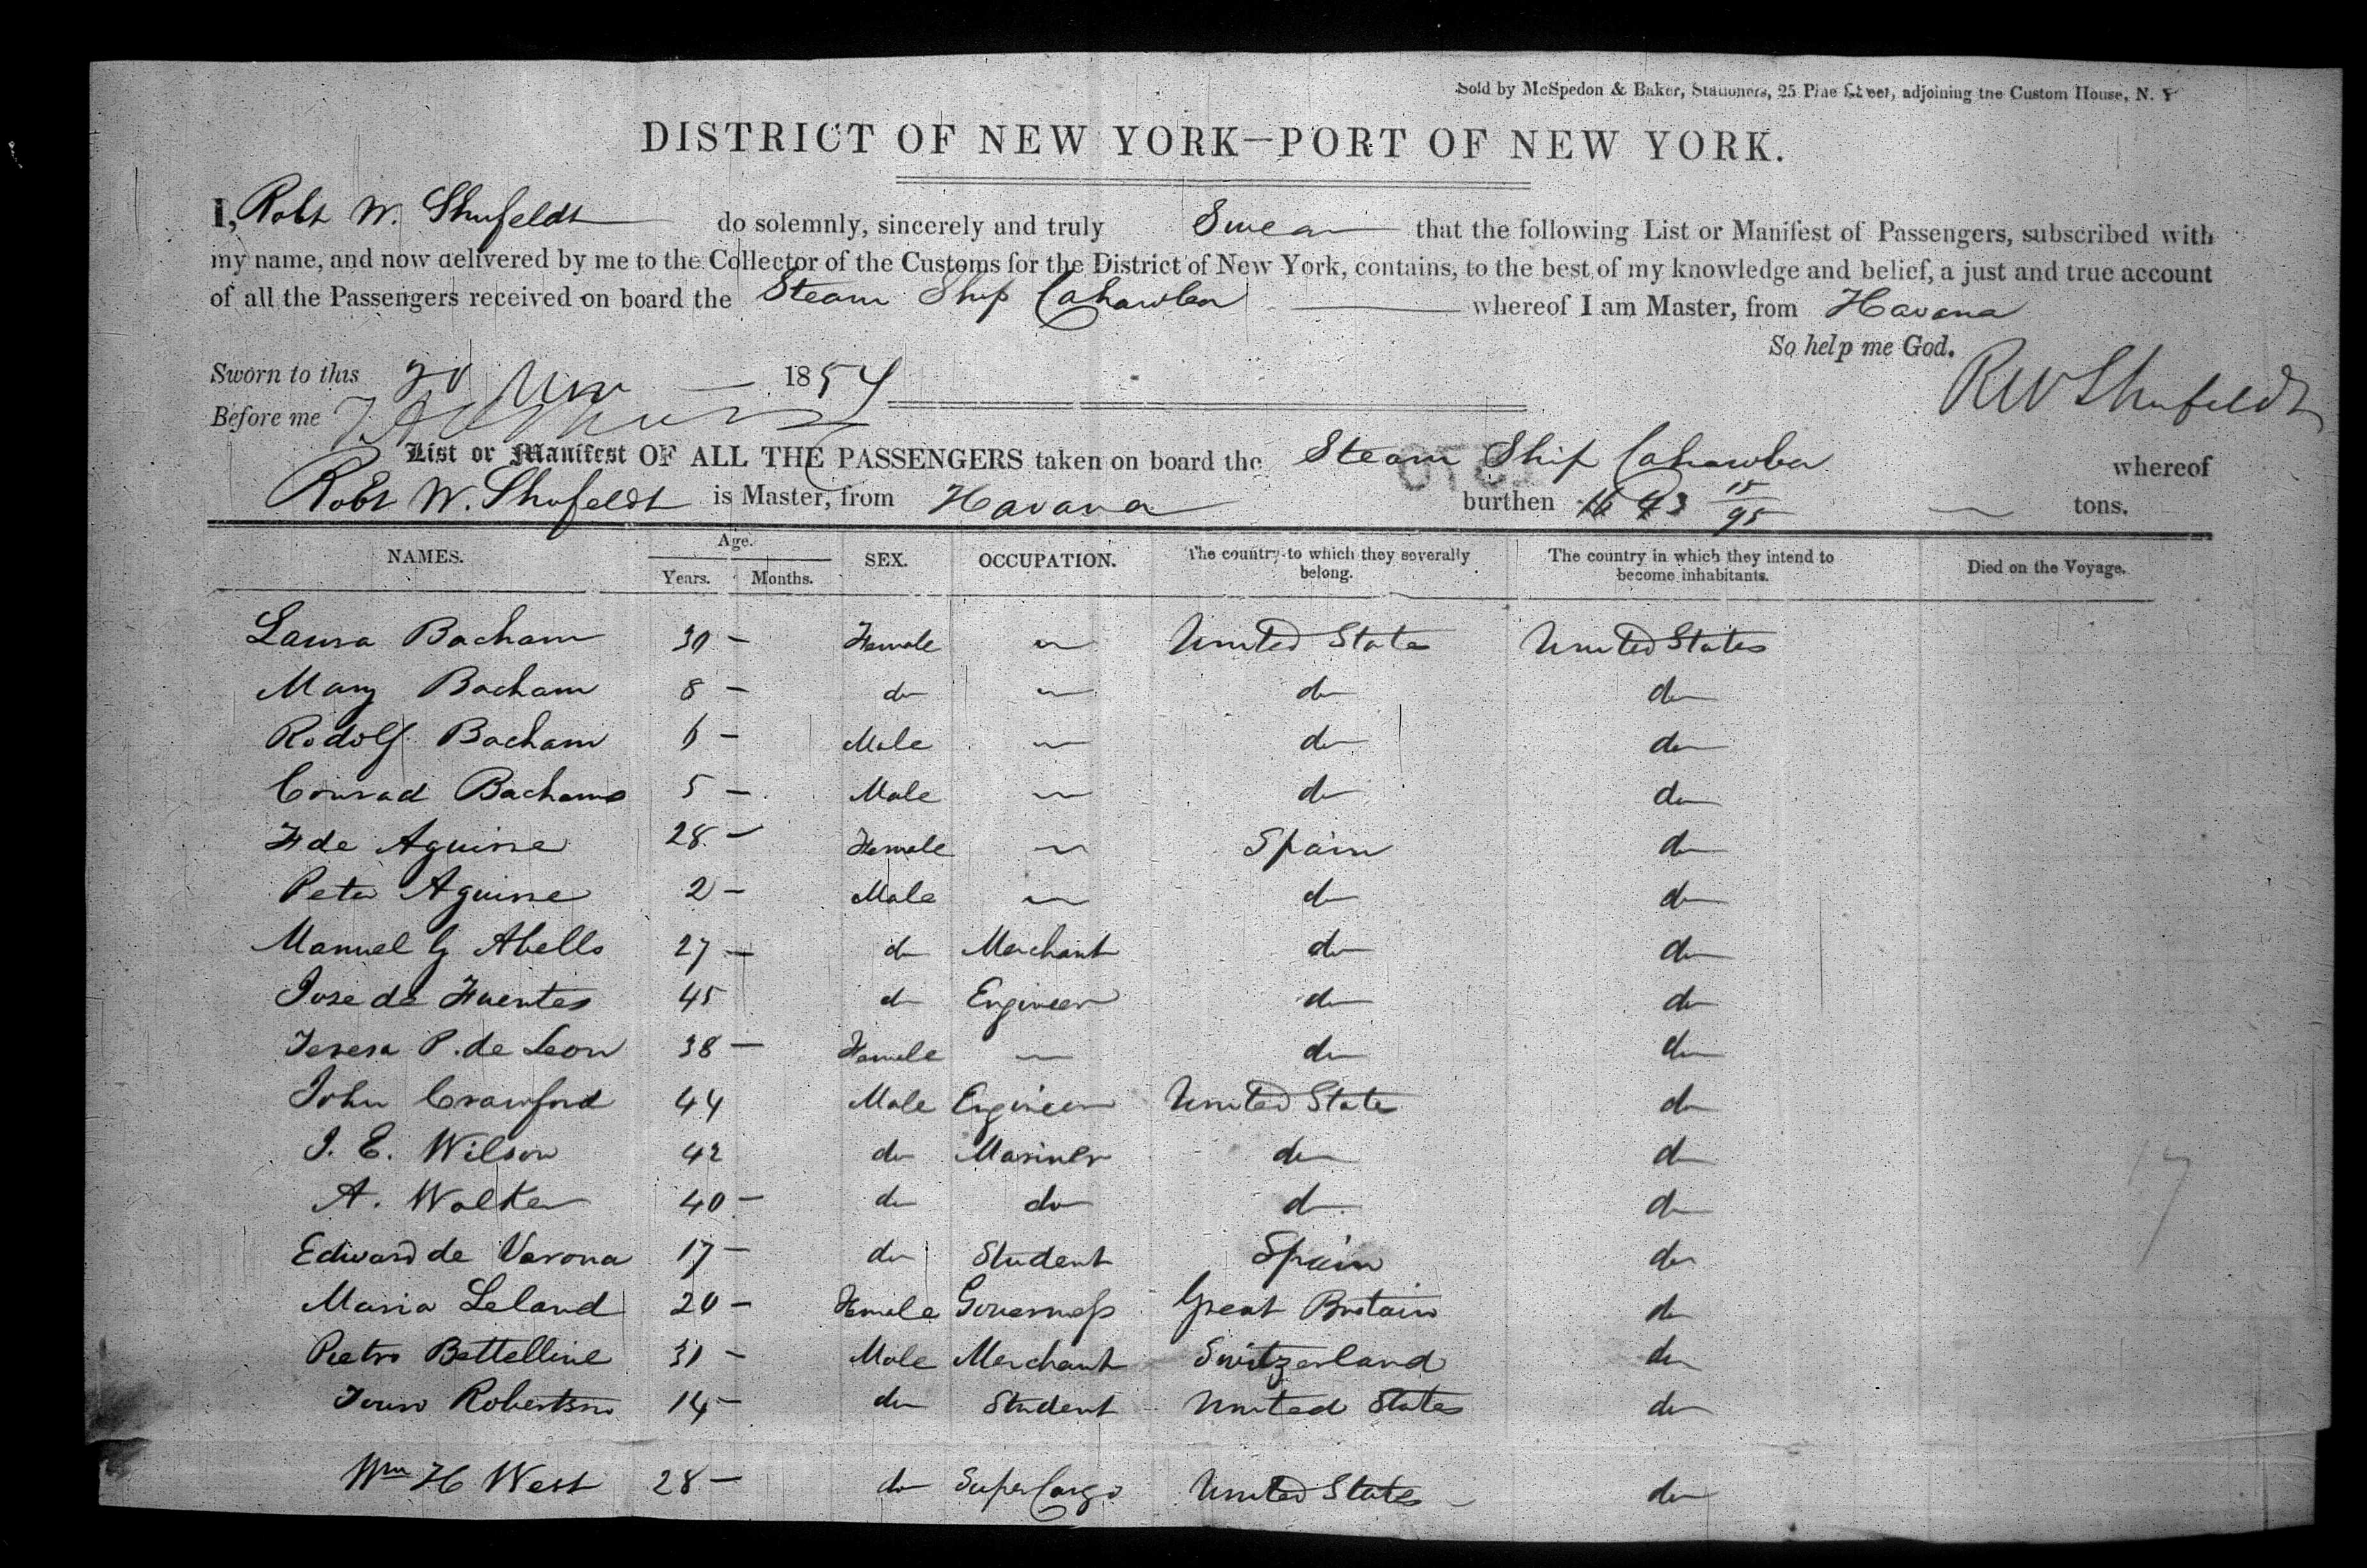 Sold by McSpedon & Baker, Stationers, 25 Pine Street, adjoining the Custom House, N. Y
DISTRICT OF NEW YORK—PORT OF NEW YORK.
I, Robt W. Shufeldt do solemnly, sincerely and truly Swear that the following List or Manifest of Passengers, subscribed with
my name, and now delivered by me to the Collector of the Customs for the District of New York, contains, to the best of my knowledge and belief, a just and true account
of all the Passengers received on board the Steam Ship Cahawba whereof I am Master, from Havana
So help me God.
Sworn to this 1854 RW Shufeldt
Before me
List or Manifest OF ALL THE PASSENGERS taken on board the Steam Ship Cahawba whereof
Robt W. Shufeldt is Master, from Havana burthen 1643 15/95 tons.
NAMES. Age. Years. Months. SEX. OCCUPATION. The country to which they severally belong. The country in which they intend to become inhabitants. Died on the Voyage.
Laura Bacham 30 — Female " United States United States
Mary Bacham 8 — do " do do
Rodolf Bacham 6 — Male " do do
Conrad Bacham 5 — Male " do do
F de Aguirre 28 — Female " Spain do
Peter Aguirre 2 — Male " do do
Manuel G Abello 27 — do Merchant do do
Jose de Fuentes 45 do Engineer do do
Teresa P. de Leon 38 — Female — do do
John Crawford 44 Male Engineer United States do
J. E. Wilson 42 do Mariner do do
A. Walker 40 — do do do do
Edward de Varona 17 — do Student Spain do
Maria Leland 20 — Female Governess Great Britain do
Pietro Bettelline 31 — Male Merchant Switzerland do
Robertson 14 — do Student United States do
Wm H West 28 — do SuperCargo United States do
17